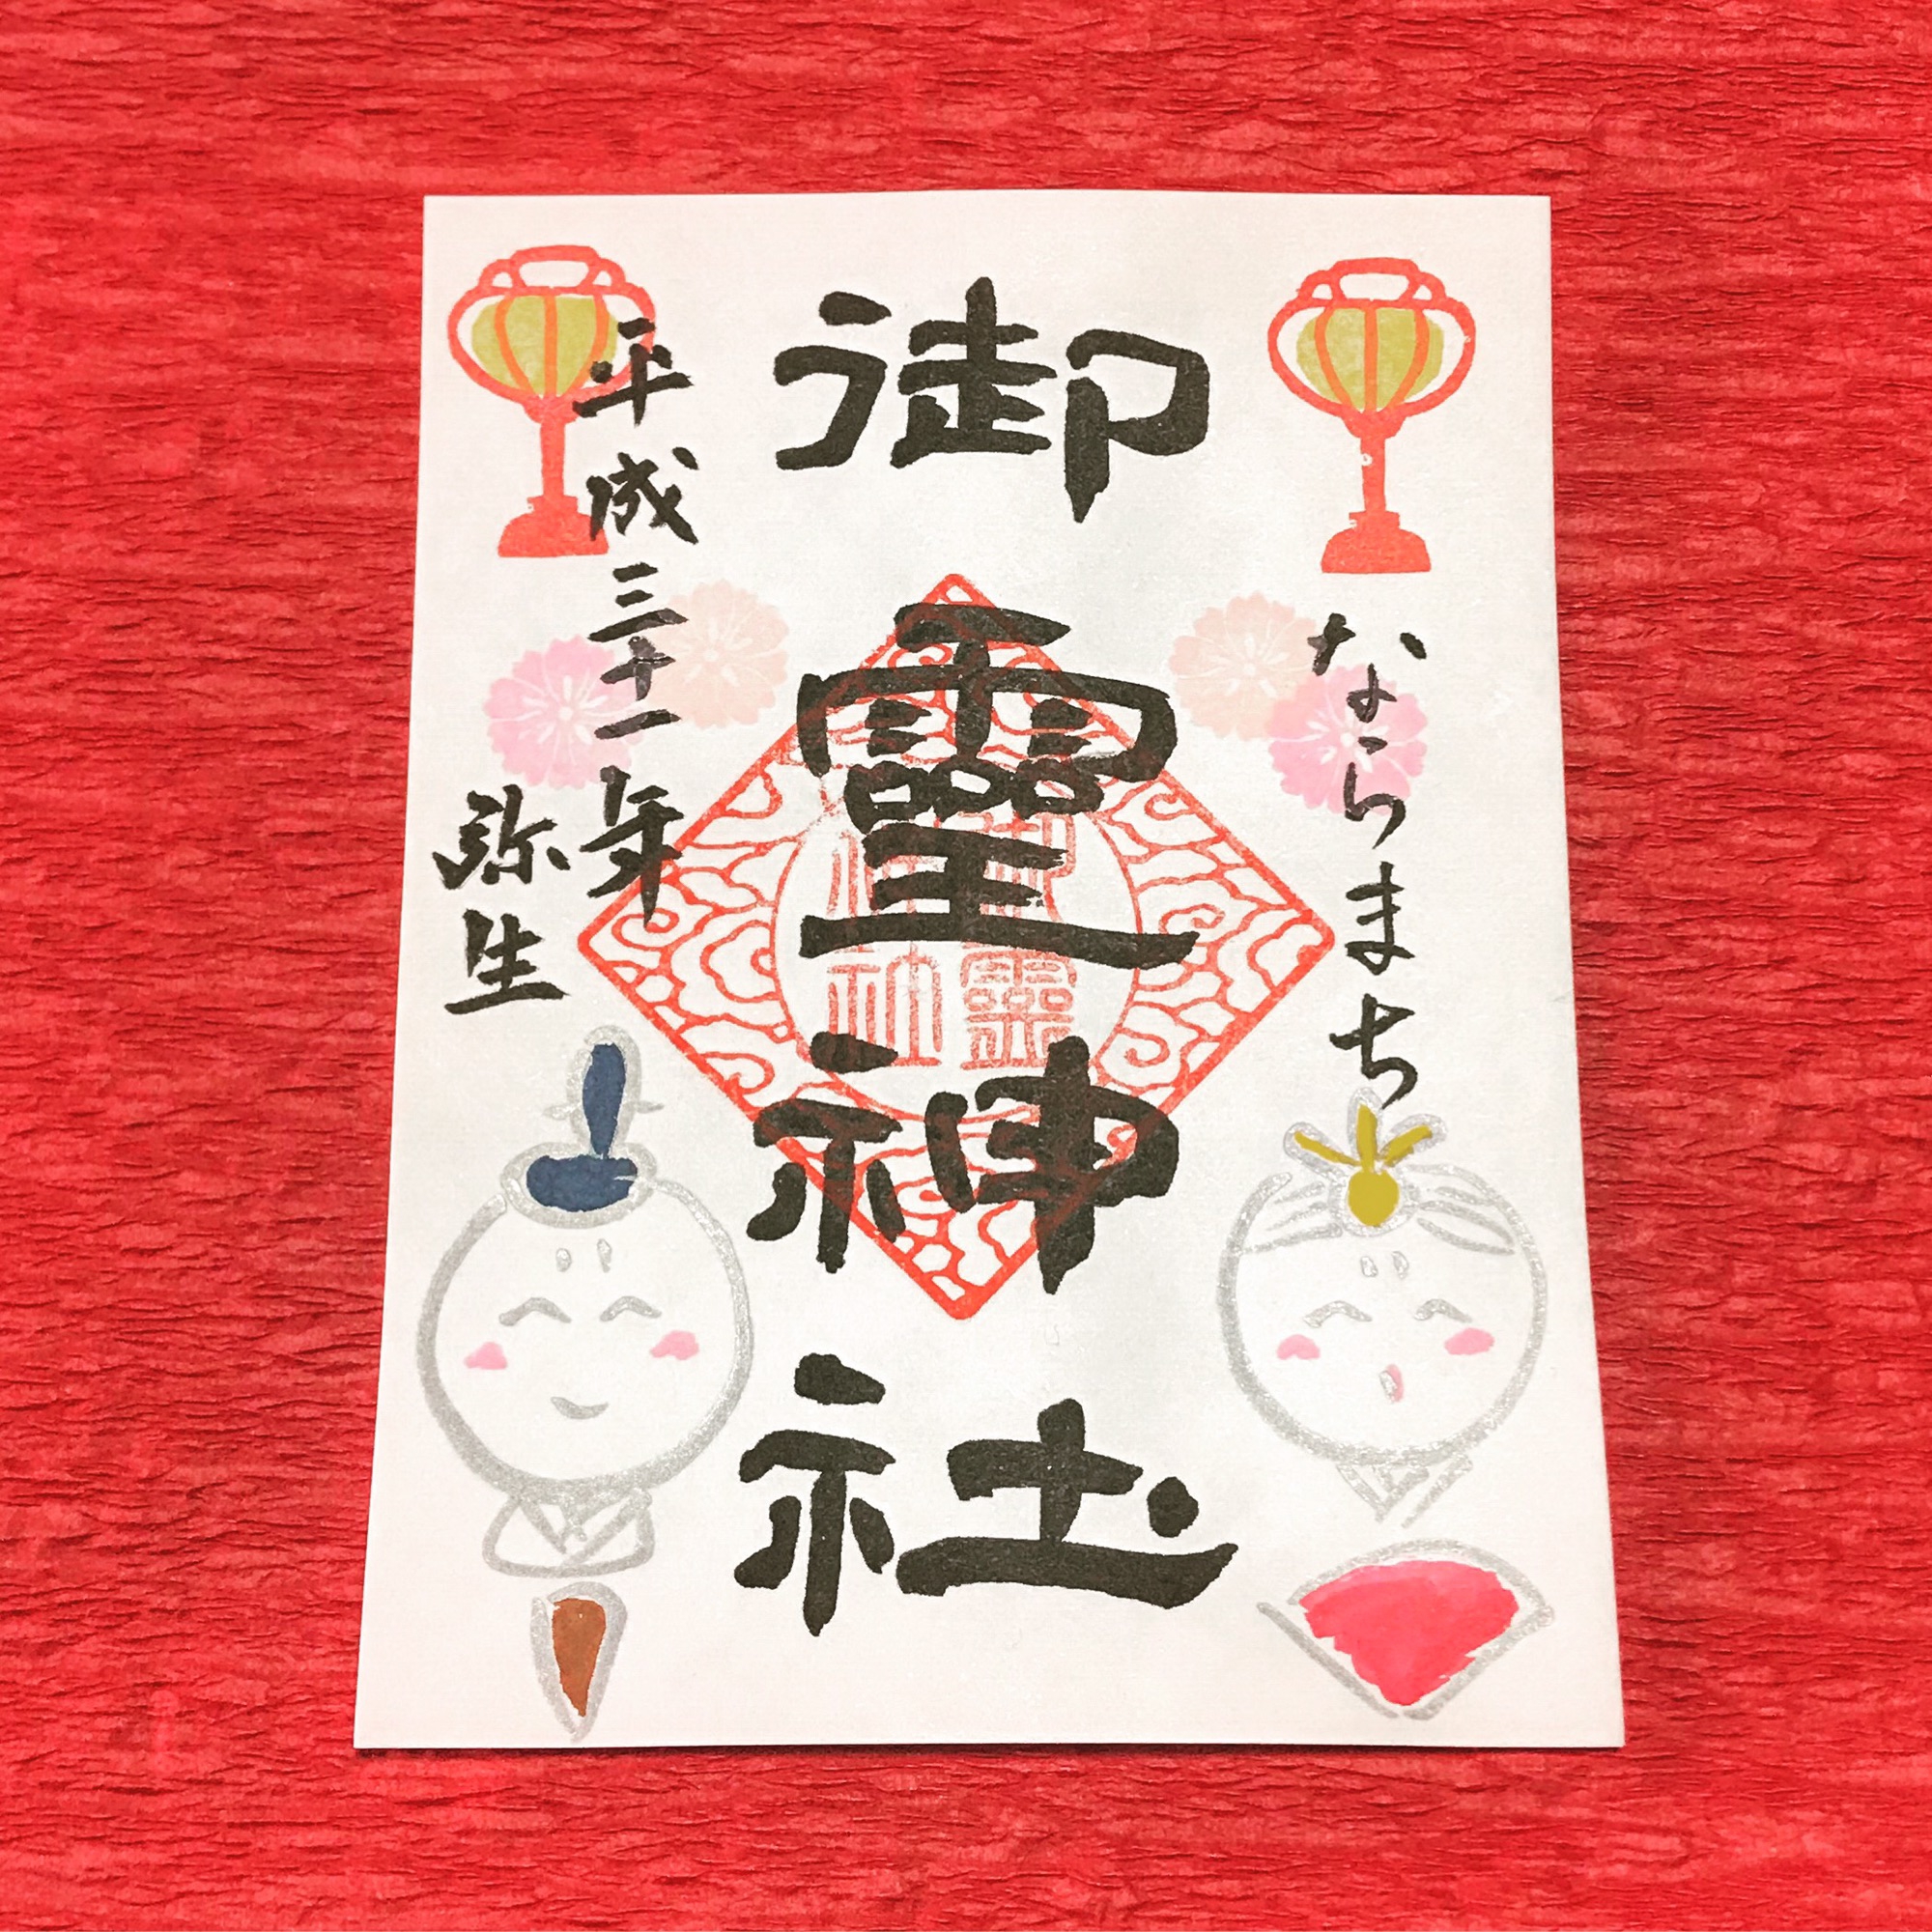 ならまち
御靈神社
平成三十一年
弥生